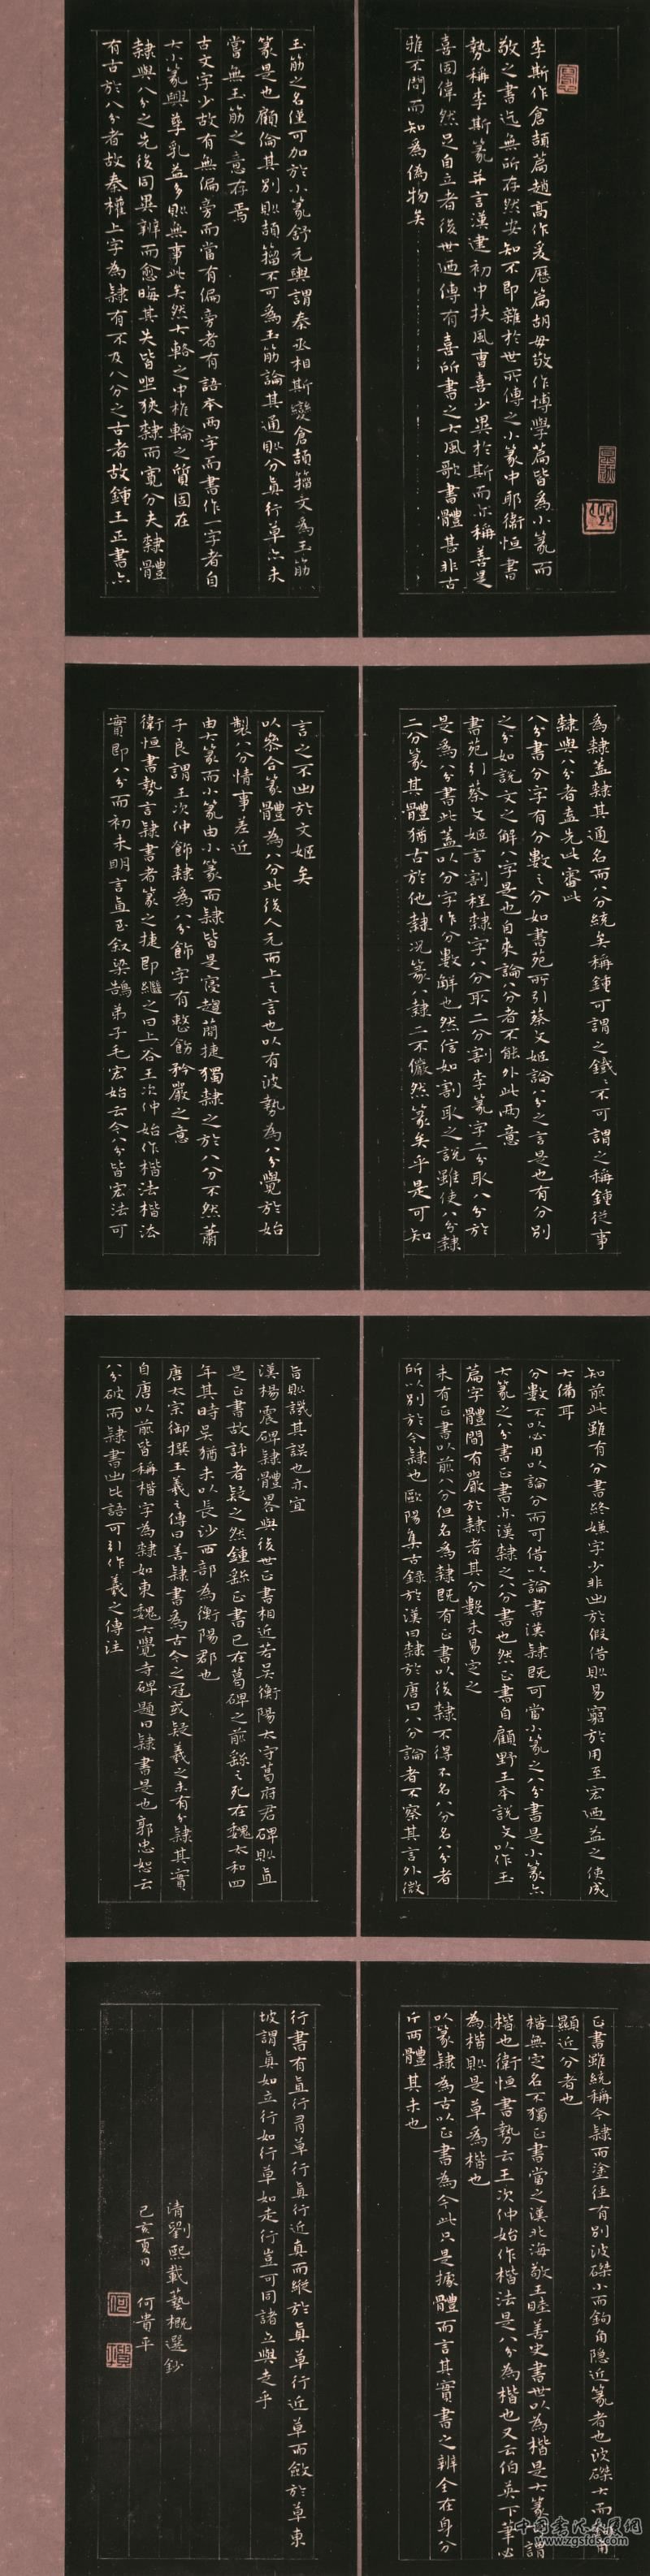 李斯作倉頡篇趙高作爰歷篇胡毋敬作博學篇皆為小篆而
敬之書迄無所存然安知不即雜於世所傳之小篆中耶衛恒書
勢稱李斯篆并言漢建初中扶風曹喜少異於斯而亦稱善是
喜固偉然足自立者後世迺傳有喜所書之大風歌書體甚非古
雅不問而知為偽物矣
玉筋之名僅可加於小篆舒元輿謂秦丞相斯變倉頡籀文為玉筋
篆是也顧論其別則頡籀不可為玉筋論其通則分真行草亦未
嘗無玉筋之意存焉
古文字少故有無偏旁而當有偏旁者有語本兩字而書作一字者自
大小篆興孳乳益多則無事此矣然大輅之中椎輪之質固在
隸與八分之先後同異辨而愈晦其失皆坐狹隸而寬分夫隸體
有古於八分者故秦權上字為隸有不及八分之古者故鍾王正書亦
為隸蓋隸其通名而八分統矣稱鍾可謂之鐵鐵不可謂之稱鍾從事
隸與八分者盍先此審此
八分書分字有分數之分如書苑所引蔡文姬論八分之言是也有分別
之分如說文之解八字是也自來論八分者不能外此兩意
書苑引蔡文姬言割程隸字八分取二分割李篆字二分取八分於
是為八分書此蓋以分字作分數解也然信如割取之說雖使八分隸
二分篆其體猶古於他隸況篆八隸二不儼然篆矣乎是可知
言之不出於文姬矣
以參合篆體為八分此後人亢而上之言也以有波勢為八分覺於始
製八分情事差近
由大篆而小篆由小篆而隸皆是寖趨簡捷獨隸之於八分不然蕭
子良謂王次仲飾隸為八分飾字有整飭矜嚴之意
衛恒書勢言隸書者篆之捷即繼之曰上谷王次仲始作楷法楷法
實即八分而初未明言直至敘梁鵠弟子毛宏始云今八分皆宏法可
知前此雖有分書終嫌字少非出於假借則易窮於用至宏迺益之使成
大備耳
分數不必用以論分而可借以論書漢隸既可當小篆之八分書是小篆亦
大篆之八分書正書亦漢隸之八分書也然正書自顧野王本說文以作玉
篇字體間有嚴於隸者其分數未易定之
未有正書以前八分但名為隸既有正書以後隸不得不名八分名八分者
所以別於今隸也歐陽集古錄於漢曰隸於唐曰八分論者不察其言外微
旨則譏其誤也亦宜
漢楊震碑隸體略與後世正書相近若吳衡陽太守葛府君碑則直
是正書故評者疑之然鍾繇正書已在葛碑之前繇之死在魏太和四
年其時吳猶未以長沙西部為衡陽郡也
唐太宗御撰王羲之傳曰善隸書為古今之冠或疑羲之未有分隸其實
自唐以前皆稱楷字為隸如東魏大覺寺碑題曰隸書是也郭忠恕云
八分破而隸書出此語可引作羲之傳注
正書雖統稱今隸而塗徑有別波磔小而鉤角隱近篆者也波磔大而鉤角
顯近分者也
楷無定名不獨正書當之漢北海敬王睦善史書世以為楷是大篆可謂
楷也衛恒書勢云王次仲始作楷法是八分為楷也又云伯英下筆必
為楷則是草為楷也
以篆隸為古以正書為今此只是據體而言其實書之辨全在身分
斤兩體其末也
行書有真行有草行真行近真而縱於真草行近草而斂於草東
坡謂真如立行如行草如走行豈可同諸立與走乎
清劉熙載藝概選鈔
己亥夏月 何貴平
中國書法大展網
www.zgsfds.com